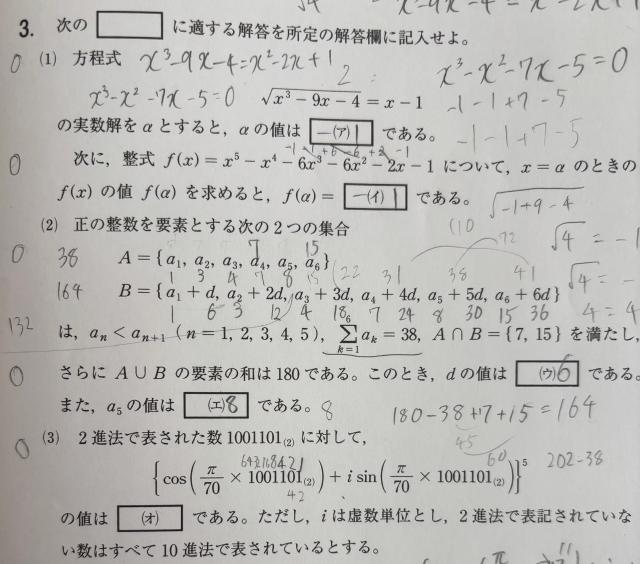 3. 次の に適する解答を所定の解答欄に記入せよ。
(1) 方程式 x³-9x-4=x²-2x+1
x³-x²-7x-5=0
2
x³-x²-7x-5=0 √(x³-9x-4) = x-1 -1-1+7-5
の実数解をαとすると，αの値は -(ア)1 である。 -1-1+7-5
次に，整式 f(x)=x⁵-x⁴-6x³-6x²-2x-1 について，x=αのときの
f(x)の値 f(α)を求めると，f(α)= -(イ)1 である。 √(-1+9-4)
(2) 正の整数を要素とする次の2つの集合
√4 = -1
7 15
38 A={a₁, a₂, a₃, a₄, a₅, a₆}
1 3 4 7 8 15 (22 31 38 41
164 B={a₁+d, a₂+2d, a₃+3d, a₄+4d, a₅+5d, a₆+6d}
1 6 3 12 4 18 7 24 8 30 15 36 4=4
132 は，aₙ<aₙ₊₁ (n=1, 2, 3, 4, 5)，∑[k=1→6] aₖ=38，A∩B={7, 15}を満たし，
さらに A∪B の要素の和は180である。このとき，dの値は (ウ)6 である。
また，a₅の値は (エ)8 である。 8 180-38+7+15=164
45
(3) 2進法で表された数1001101₍₂₎に対して，
60
{cos(π/70 × 1001101₍₂₎) + i sin(π/70 × 1001101₍₂₎)}⁵ 202-38
42
の値は (オ) である。ただし，iは虚数単位とし，2進法で表記されていな
い数はすべて10進法で表されているとする。